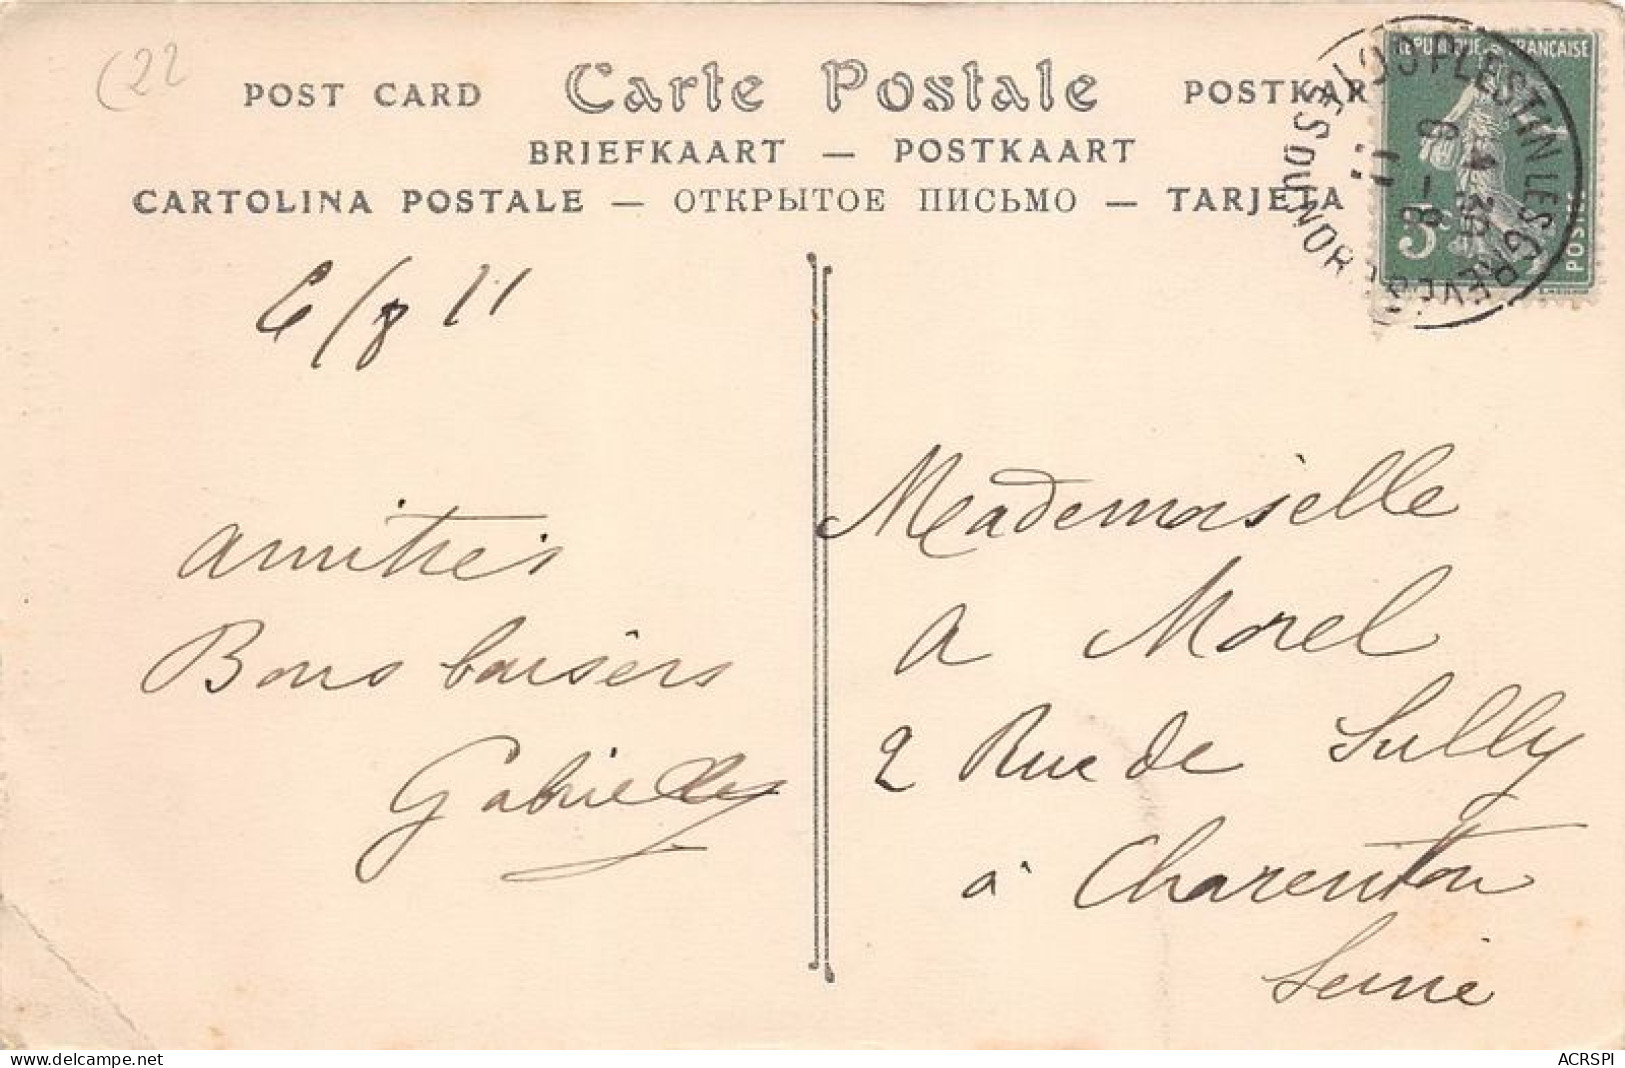 (22
POST CARD Carte Postale POSTKAR
BRIEFKAART — POSTKAART
CARTOLINA POSTALE — ОТКРЫТОЕ ПИСЬМО — TARJETA
REPUBLIQUE FRANÇAISE
5c
POSTES
PLESTIN LES GREVES
COTES DU NORD
6 - 8
11
6/8 11
amitiés
Bons baisers
Gabrielle
Mademoiselle
A Morel
2 Rue de Sully
à Charenton
Seine
delcampe.net
ACRSPI